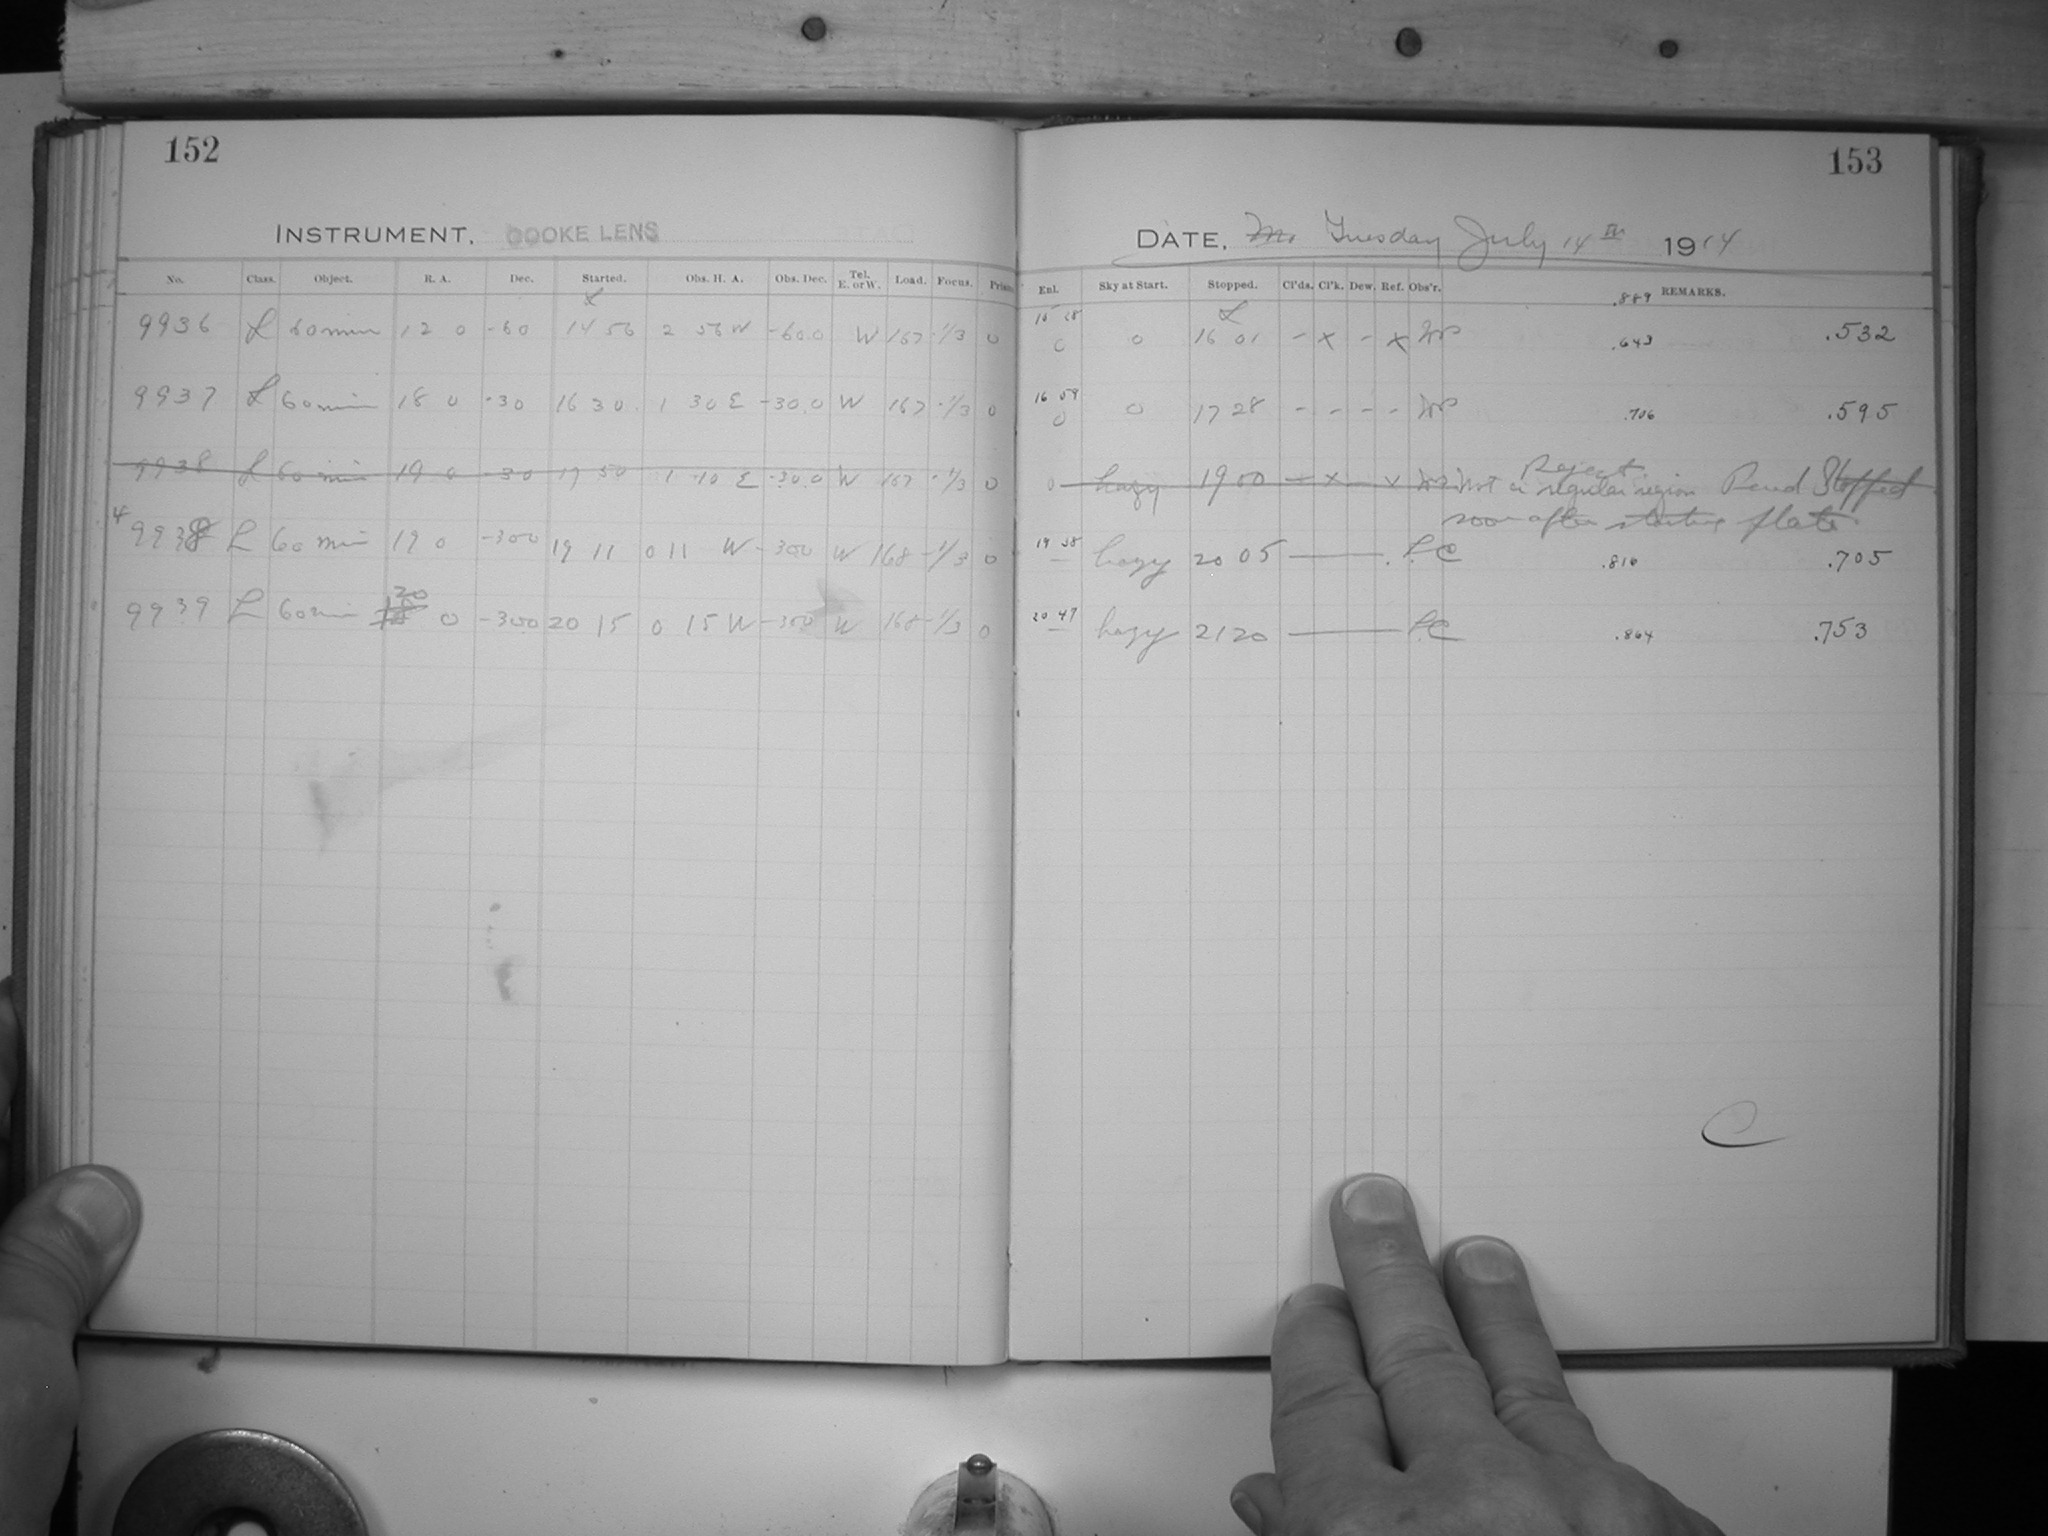 152
INSTRUMENT. COOKE LENS
No. Class. Object. R. A. Dec. Started. Obs. H. A. Obs. Dec. Tel. E. or W. Load. Focus. Prism
9936 L 60 min 12 0 -60 14 56 2 56 W -60.0 W 167 -1/3 0
9937 L 60 min 18 0 -30 16 30 1 30 E -30.0 W 167 -1/3 0
9938 L 60 min 19 0 -30 17 50 1 10 E -30.0 W 167 -1/3 0
9938 L 60 min 19 0 -300 19 11 0 11 W -300 W 168 -1/3 0
9939 L 60 min 20 0 -300 20 15 0 15 W -300 W 168 -1/3 0
153
DATE, Tuesday July 14th 1914
Enl. Sky at Start. Stopped. Cl'ds. Cl'k. Dew. Ref. Obs'r. REMARKS.
.889
15 28 0 0 16 01 - x - x .643 .532
16 59 0 0 17 28 - - - - .706 .595
Reject
0 hazy 19 00 - x - x Not a regular region Pend Stopped
soon after starting plate
19 38 - hazy 20 05 L.C .816 .705
20 47 - hazy 21 20 L.C .864 .753
C